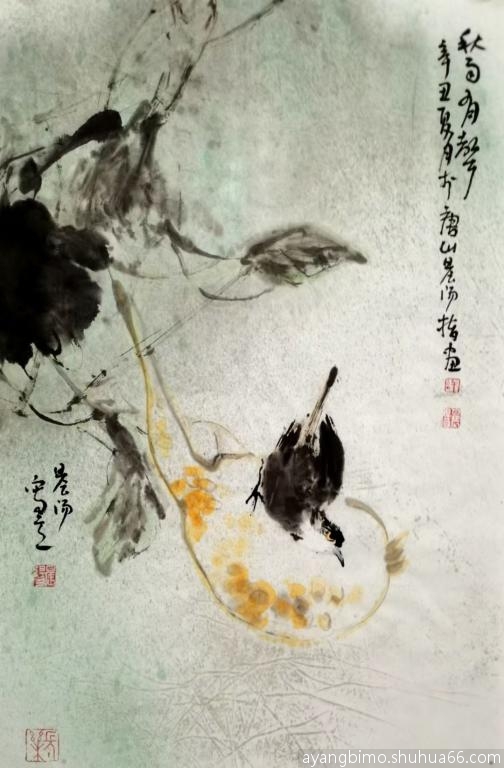 秋雨有声
辛丑夏月于唐山晨阳指画
晨阳
写意
ayangbimo.shuhua66.com